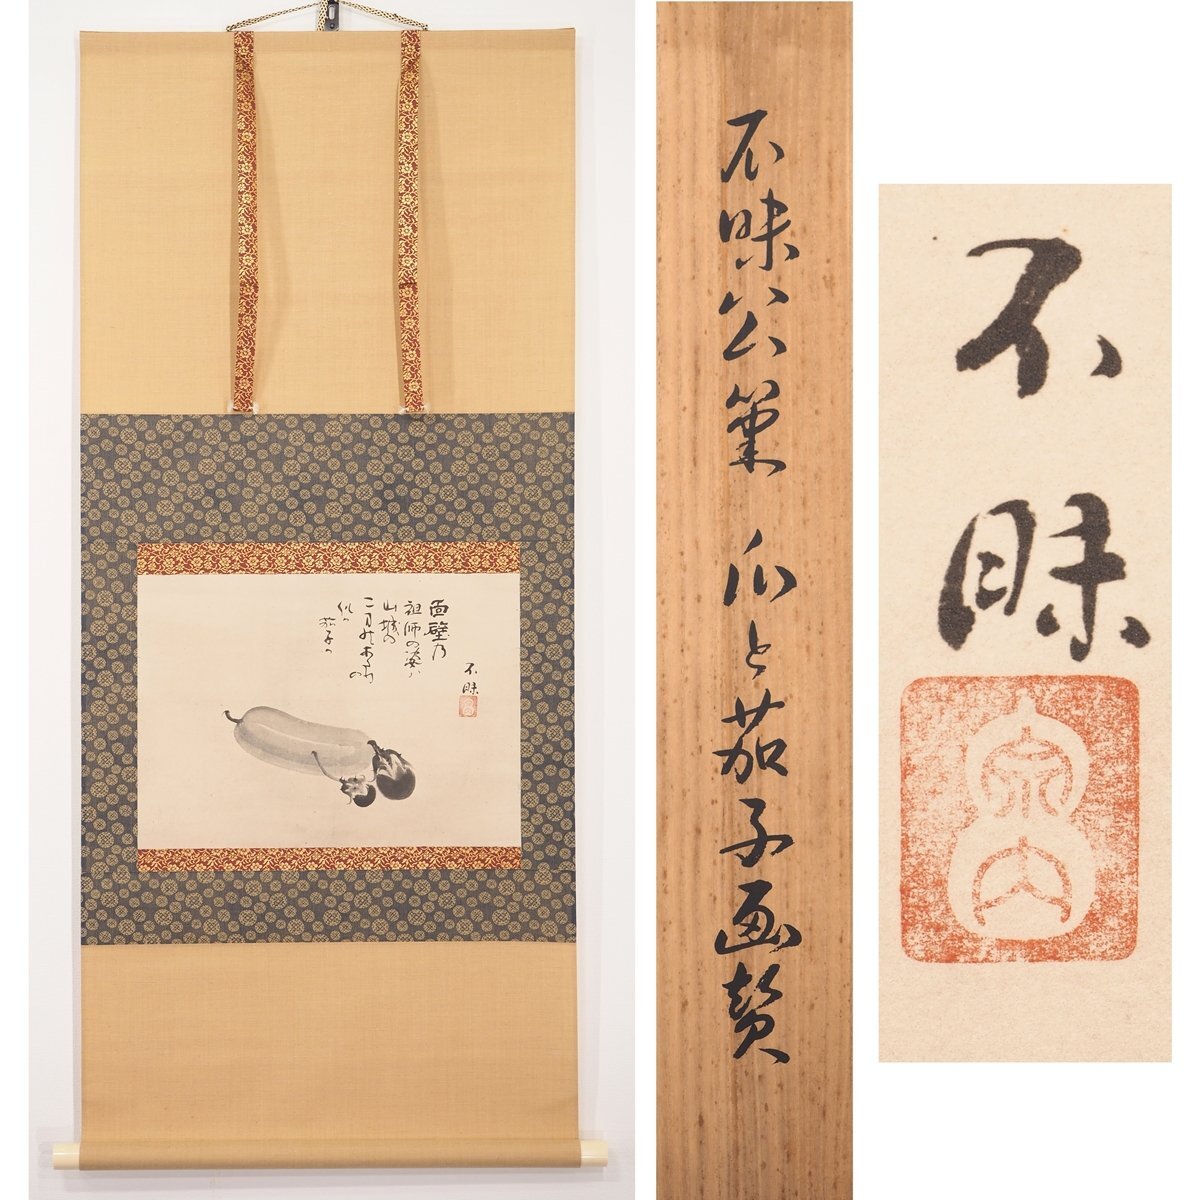 面壁乃
祖師の姿ハ
山城の
似か
茄子か
不昧
不昧公筆 瓜と茄子画賛
不昧